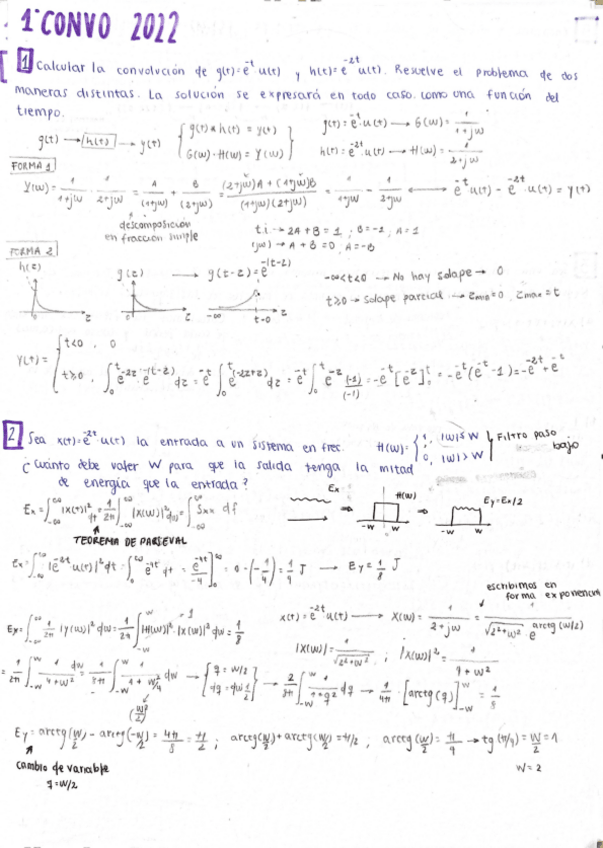 1ª CONVO 2022
1 Calcular la convolución de g(t)=e^{-t}·u(t) y h(t)=e^{-2t}u(t). Resuelve el problema de dos
maneras distintas. La solución se expresará en todo caso como una función del
tiempo.
g(t) → h(t) → y(t) { g(t)*h(t) = y(t) g(t)=e^{-t}·u(t) → G(w)= 1/(1+jw)
G(w)·H(w)=Y(w) } h(t)=e^{-2t}·u(t) → H(w)= 1/(2+jw)
FORMA 1
Y(w)= 1/(1+jw) · 1/(2+jw) = A/(1+jw) + B/(2+jw) = ((2+jw)A+(1+jw)B)/((1+jw)(2+jw)) = 1/(1+jw) - 1/(2+jw) ↔ e^{-t}u(t) - e^{-2t}·u(t) = y(t)
descomposición
en fracción simple
t.i → 2A+B=1 ; B=-1, A=1
(jw) → A+B=0, A=-B
FORMA 2
h(z) g(z) → g(t-z)=e^{-(t-z)}
-∞<t<0 → No hay solape → 0
t≥0 → Solape parcial → z_min=0, z_max=t
z z -∞ t=0 z
Y(t)= { t<0, 0
t≥0, ∫_0^t e^{-2z}·e^{-(t-z)} dz = e^{-t}∫_0^t e^{(-2z+z)} dz = e^{-t}∫_0^t e^{-z} (-1)/(-1) = -e^{-t}[e^{-z}]_0^t = -e^{-t}(e^{-t}-1) = -e^{-2t}+e^{-t}
2 Sea x(t)=e^{-2t}·u(t) la entrada a un sistema en frec. H(w)= { 1, |w|≤W
0, |w|>W } Filtro paso
bajo
¿Cuánto debe valer W para que la salida tenga la mitad
de energía que la entrada?
Ex=∫_{-∞}^{∞} |x(t)|² dt = 1/2π ∫_{-∞}^{∞} |X(w)|² dw = ∫_{-∞}^{∞} Sxx df
Ex H(w) Ey=Ex/2
-W W -W W
TEOREMA DE PARSEVAL
Ex=∫_{-∞}^{∞} |e^{-2t}u(t)|² dt = ∫_0^{∞} e^{-4t} dt = [e^{-4t}/-4]_0^{∞} = 0-(-1/4) = 1/4 J → Ey = 1/8 J
escribimos en
forma exponencial
Ey=∫_{-∞}^{∞} 1/2π |Y(w)|² dw = 1/2π ∫_{-W}^{W} |H(w)|²·|X(w)|² dw = 1/8
=1
x(t)=e^{-2t}·u(t) → X(w)= 1/(2+jw) = 1/(√(2²+w²) e^{arctg(w/2)})
|X(w)|= 1/√(2²+w²) ; |X(w)|²= 1/(4+w²)
= 1/2π ∫_{-W}^{W} 1/(4+w²) dw = 1/8π ∫_{-W}^{W} 1/(1+w²/4) dw → { q=w/2
dq=dw 1/2 } → 2/8π ∫_{-W}^{W} 1/(1+q²) dq → 1/4π · [arctg(q)]_{-W}^{W} = 1/8
(w/2)²
Ey= arctg(W/2) - arctg(-W/2) = 4π/8 = π/2 ; arctg(W/2)+arctg(W/2)=π/2 ; arctg(W/2) = π/4 → tg(π/4)=W/2=1
cambio de variable
q=w/2
W=2